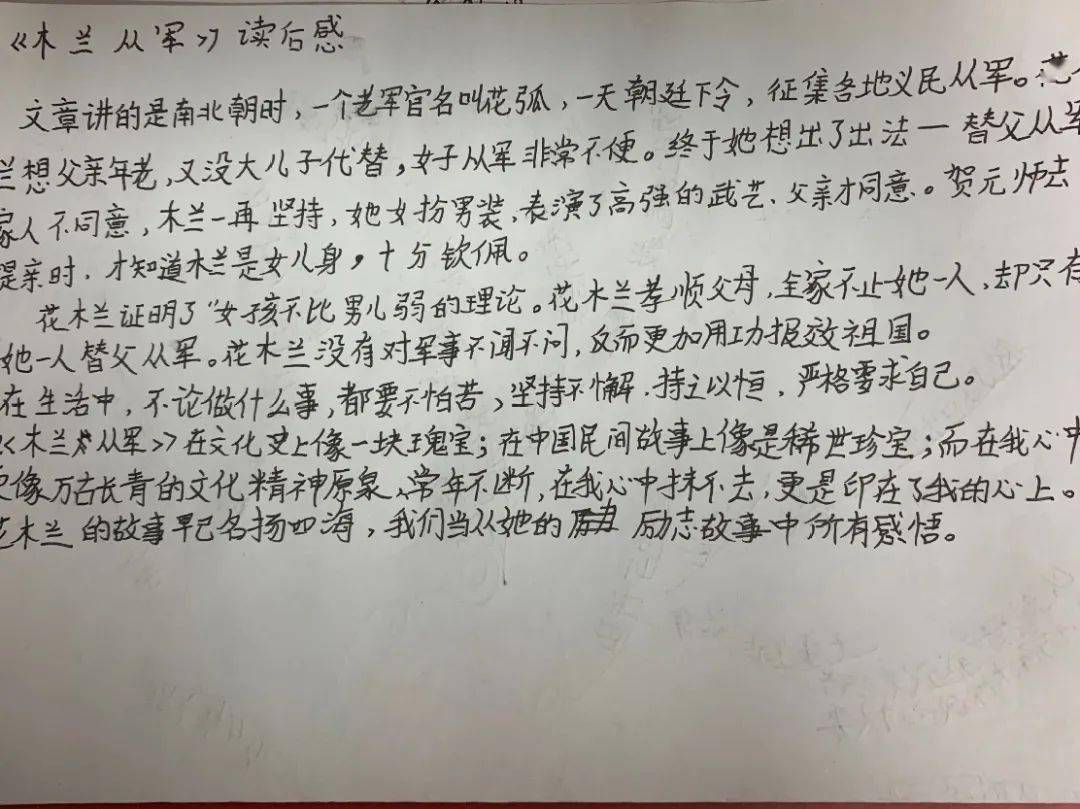 《木兰从军》读后感
文章讲的是南北朝时，一个老军官名叫花弧，一天朝廷下令，征集各地义民从军。花
兰想父亲年老，又没大儿子代替，女子从军非常不便。终于她想出了出法一替父从军
家人不同意，木兰一再坚持，她女扮男装、表演了高强的武艺、父亲才同意。贺元帅去
提亲时，才知道木兰是女儿身，十分钦佩。
花木兰证明了“女孩不比男儿弱的理论。花木兰孝顺父母，全家不止她一人，却只有
她一人替父从军。花木兰没有对军事不闻不问，反而更加用功报效祖国。
在生活中，不论做什么事，都要不怕苦、坚持不懈、持之以恒，严格要求自己。
《木兰从军》在文化史上像一块瑰宝；在中国民间故事上像是稀世珍宝；而在我心中
更像万古长青的文化精神原泉、常年不断，在我心中抹不去，更是印在了我的心上。
花木兰的故事早已名扬四海，我们当从她的励志故事中所有感悟。